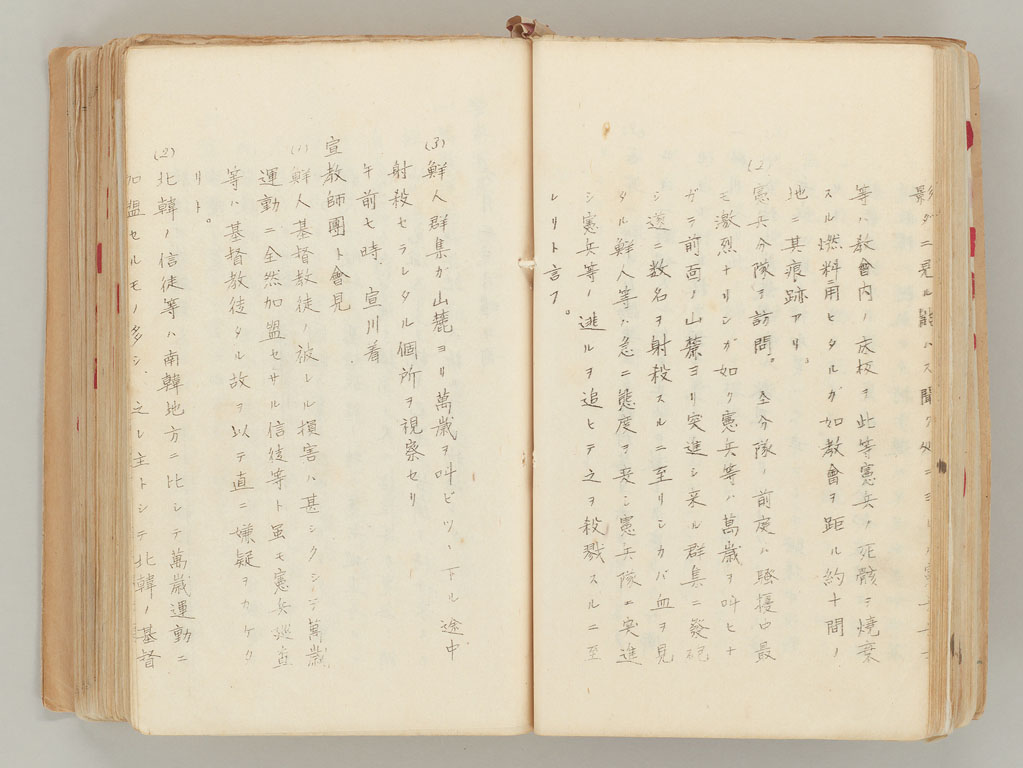 影ダニ見ル能ハス聞ク処ニヨレハ
等ハ教會内ノ床板ヲ此等憲兵ノ死骸ヲ燒棄
スル燃料ニ用ヒタルガ如教會ヲ距ル約十間ノ
地ニ其痕跡アリ。
(2)憲兵分隊ヲ訪問。仝分隊ノ前庭ハ騷擾中最
モ激烈ナリシガ如ク憲兵等ハ萬歳ヲ叫ヒナ
ガラ前面ノ山麓ヨリ突進シ来ル群集ニ發砲
シ遂ニ数名ヲ射殺スルニ至リシカバ血ヲ見
タル鮮人等ハ急ニ態度ヲ変シ憲兵隊ニ突進
シ憲兵等ノ逃ルヲ追ヒテ之ヲ殺戮スルニ至
レリト言フ。
(3)鮮人群集ガ山麓ヨリ萬歳ヲ叫ビツヽ下ル途中
射殺セラレタル個所ヲ視察セリ
午前七時 宣川着
宣教師團ト會見
(1)鮮人基督教徒ノ被レル損害ハ甚シクシテ萬歳
運動ニ全然加盟セサル信徒等ト虽モ憲兵巡査
等ハ基督教徒タル故ヲ以テ直ニ嫌疑ヲカケタ
リト。
(2)北韓ノ信徒等ハ南韓地方ニ比シテ萬歳運動ニ
加盟セルモノ多シ、之レ主トシテ北韓ノ基督